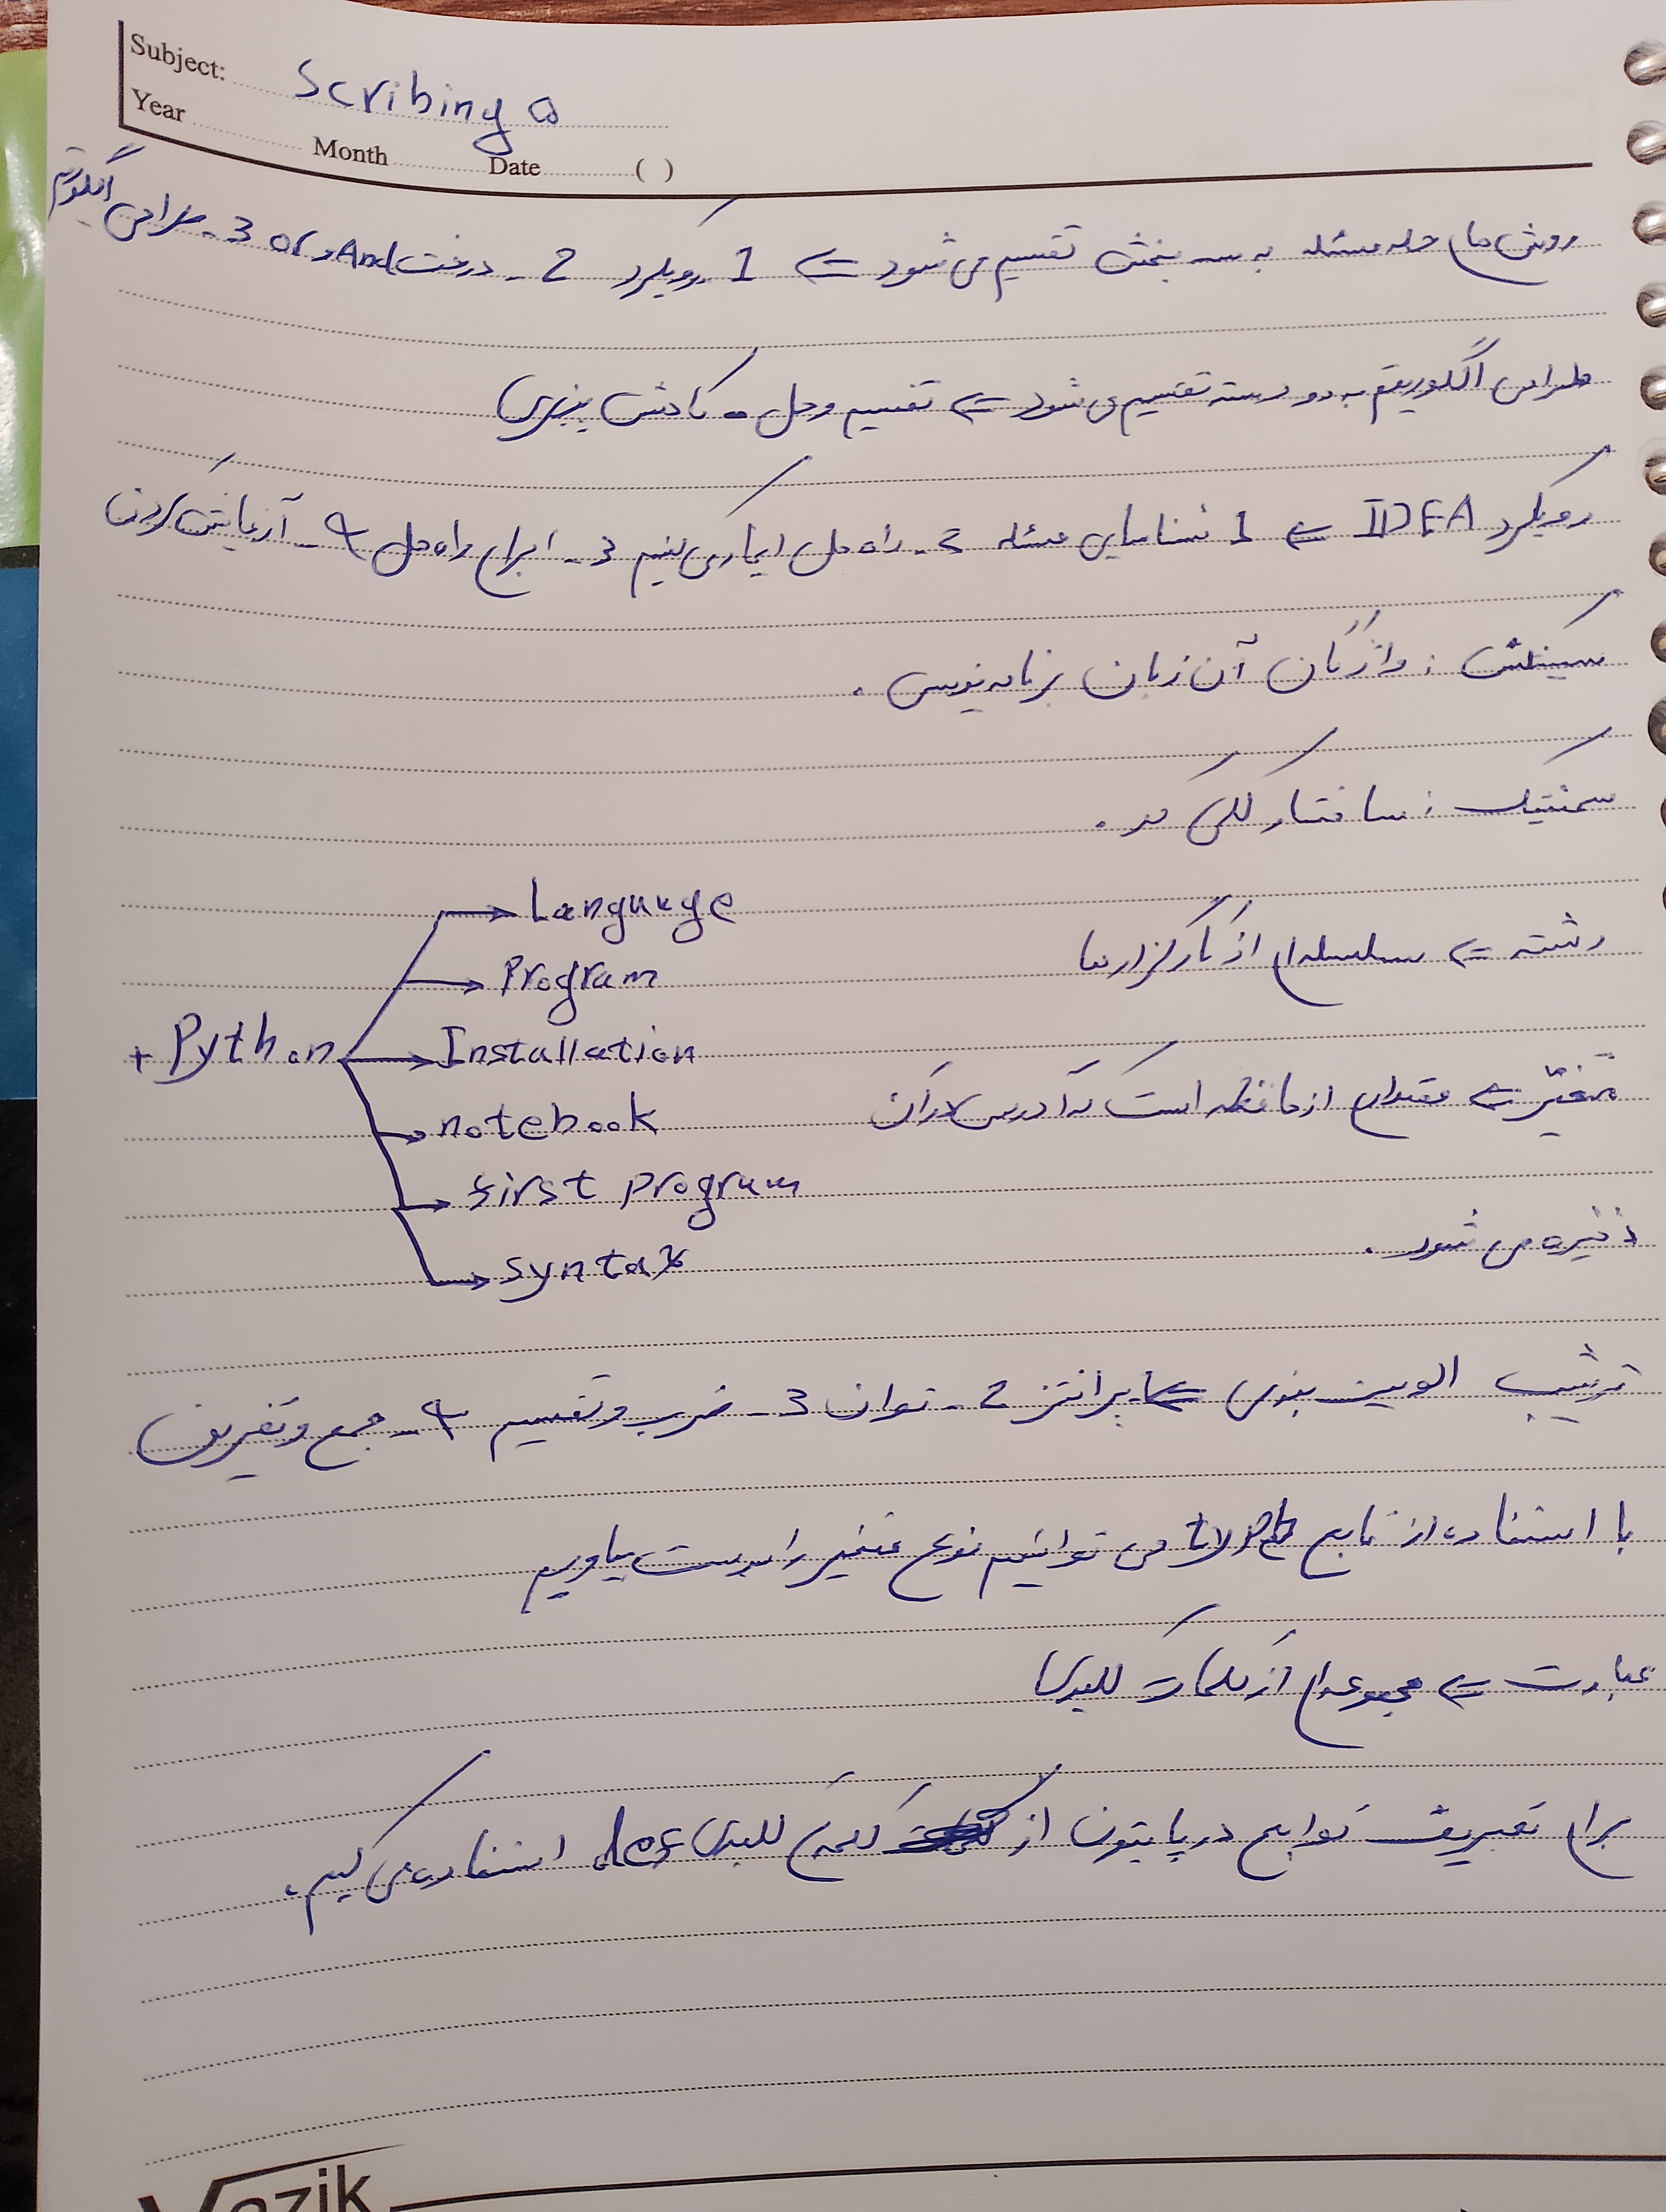 Subject: Scribing
Year Month Date ( )
روش های حل مسئله به سه بخش تقسیم می شود ⇐ 1 رویکرد 2 - درخت And و or 3 - طراحی الگوریتم
طراحی الگوریتم به دو دسته تقسیم می شود ⇐ تقسیم و حل • کاهش پذیری
رویکرد IDEA ⇐ 1 شناسایی مسئله 2 - راه حل ایجاد می کنیم 3 - اجرای راه حل 4 - آزمایش کردن
سینتکس : واژگان آن زبان برنامه نویسی .
سمنتیک : ساختار کلی کد .
رشته ⇐ سلسله ای از کارکترها
متغیر ⇐ مقداری از حافظه است که آدرس در آن
ذخیره می شود .
+ Python
→ Language
→ Program
→ Installation
→ notebook
→ first program
→ syntax
ترتیب الویت بندی ⇐ 1- پرانتز 2 - توان 3 - ضرب و تقسیم 4 - جمع و تفریق
با استفاده از تابع type می توانیم نوع متغیر را بدست بیاوریم
عبارت ⇐ مجموعه ای از کلمات کلیدی
برای تعریف توابع در پایتون از کلمه ی کلیدی def استفاده می کنیم .
Vazik